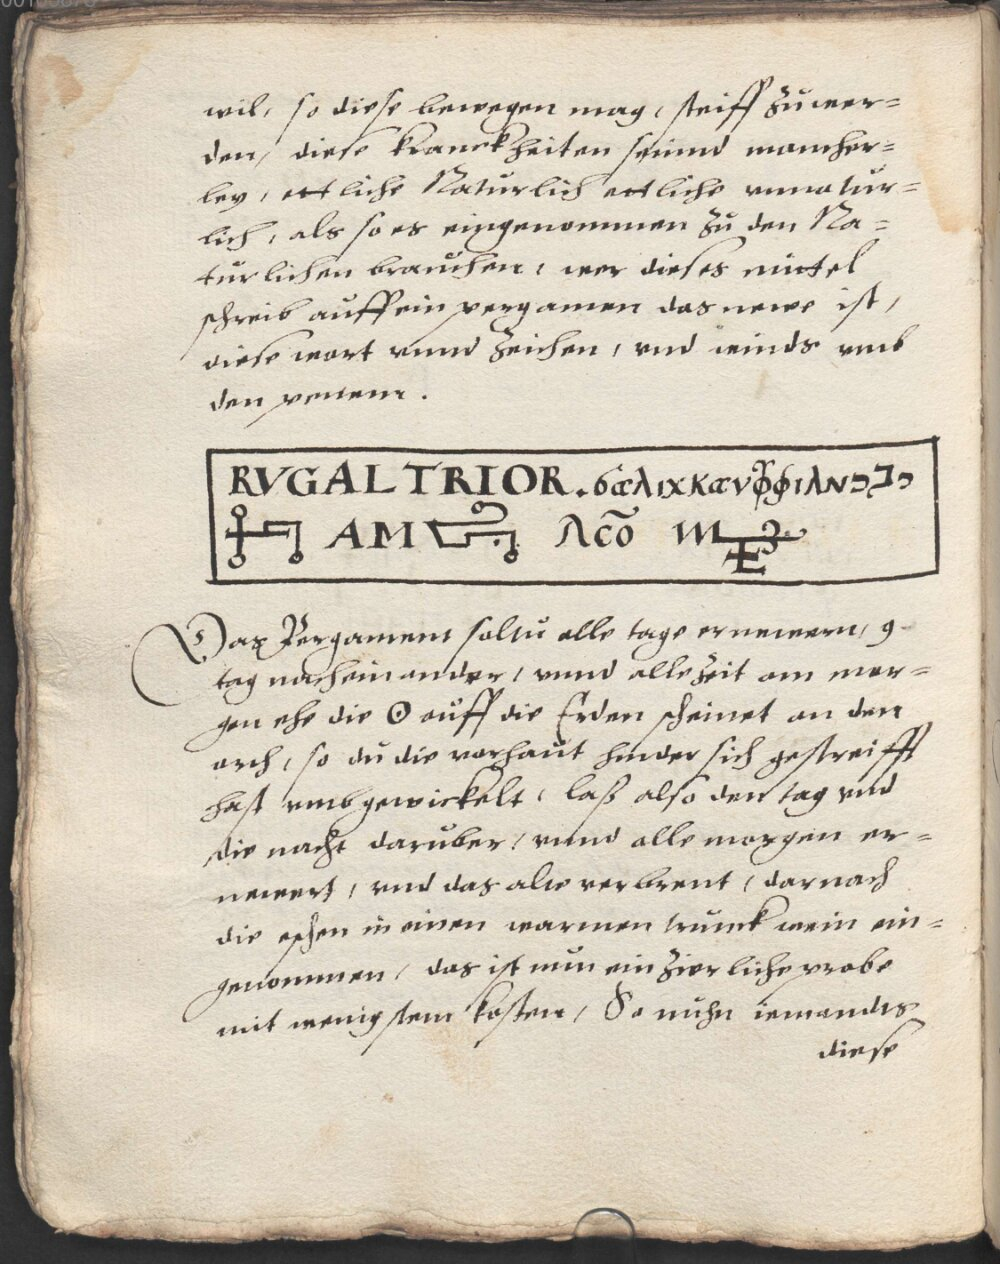 wil, so diese bewegen mag, steiff zuwer=
den, diese kranckheiten seünd mancher=
ley, ettliche Natürlich ettliche vnnatür=
lich, als so es eingenommen zu den Na=
türlichen brauchen, wer dieses mittel
schreib auff ein pergamen das newe ist,
diese wort vnnd zeichen, vnd winds vmb
den penem.
RVGAL TRIOR.
AM
Das Pergament soltu alle tage ernewern, 9
tag nacheinander, vnnd alle zeit am mor=
gen ehe die ☉ auff die Erden scheinet an den
orth, so du die vorhaut hinder sich gestreifft
hast vmbgewickelt, laß also den tag vnd
die nacht darüber, vnnd alle morgen er=
newert, vnd das alte verbrent, darnach
die aschen in einen warmen trunck wein ein=
genommen, das ist nun ein zierliche probe
mit wenigstem kosten, So nuhn iemandts
diese